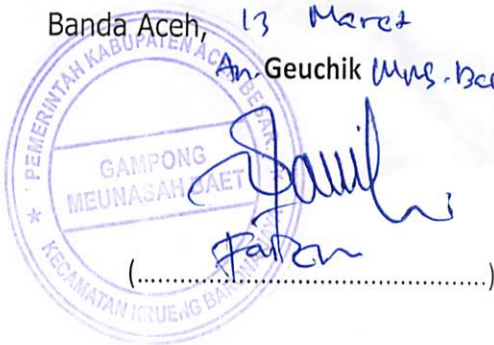 Banda Aceh, 13 Maret
An. Geuchik Mns. Bae
PEMERINTAH KABUPATEN ACEH BESAR
GAMPONG
MEUNASAH BAET
KECAMATAN KRUENG BARONA JAYA
(........................................................)